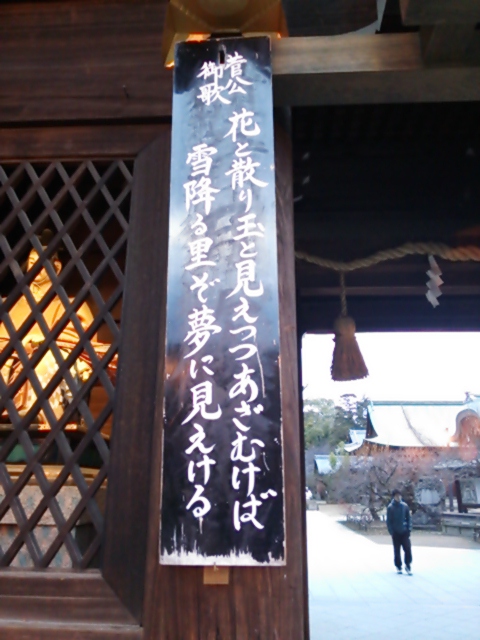 菅公
御歌
花と散り玉と見えつつあざむけば
雪降る里ぞ夢に見えける